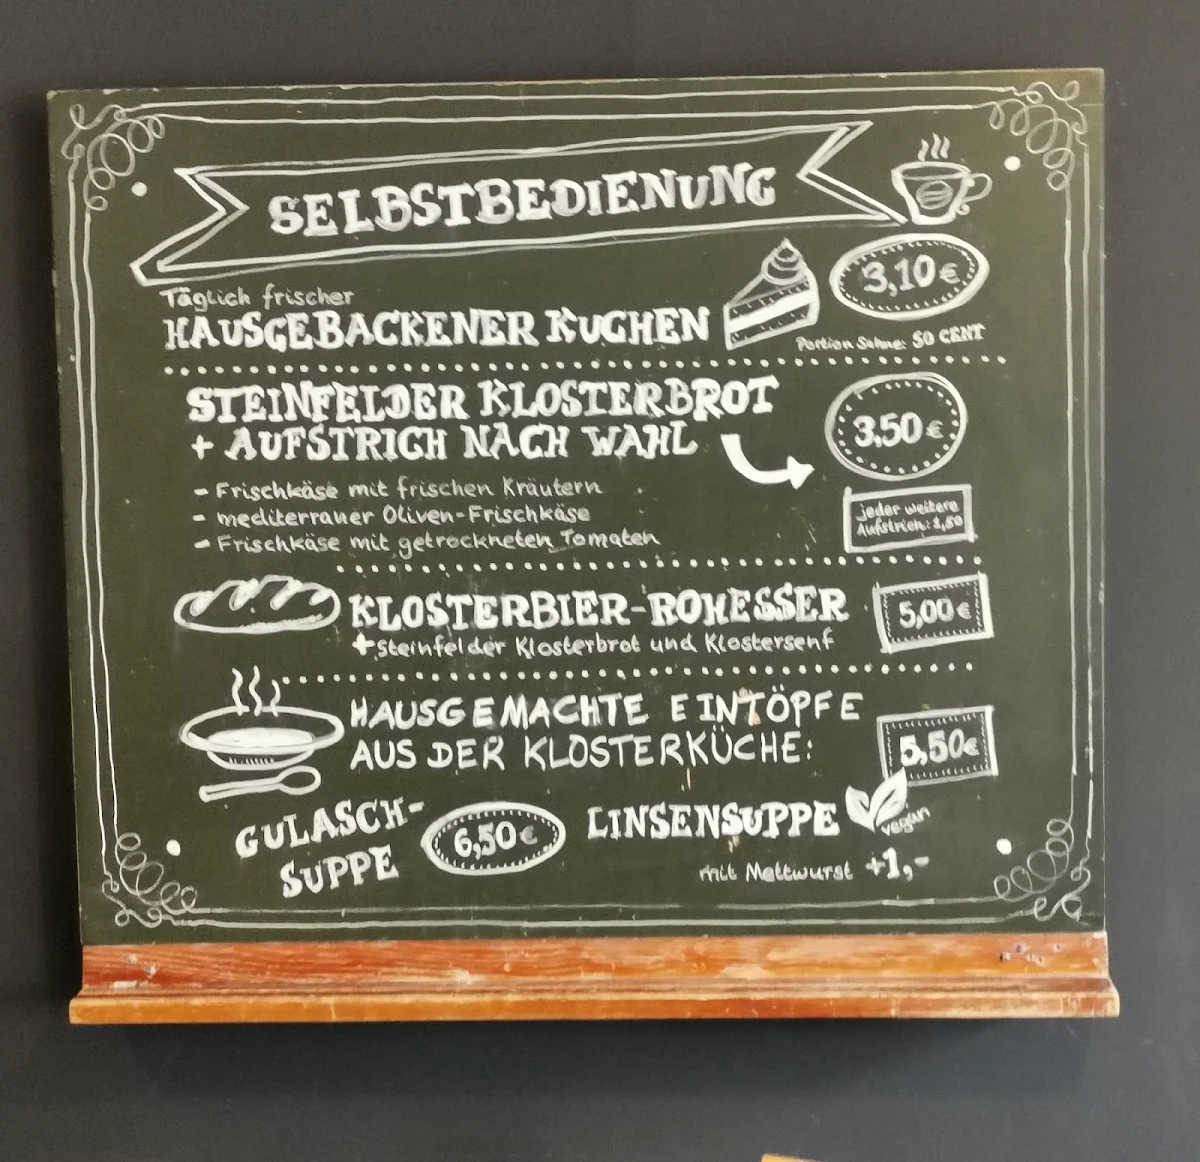 SELBSTBEDIENUNG
Täglich frischer
HAUSGEBACKENER KUCHEN
3,10€
Portion Sahne: 50 CENT
STEINFELDER KLOSTERBROT
+ AUFSTRICH NACH WAHL
3,50€
- Frischkäse mit frischen Kräutern
- mediterraner Oliven-Frischkäse
- Frischkäse mit getrockneten Tomaten
jeder weitere
Aufstrich: 1,50
KLOSTERBIER-ROHESSER
+Steinfelder Klosterbrot und Klostersenf
5,00€
HAUSGEMACHTE EINTÖPFE
AUS DER KLOSTERKÜCHE:
5,50€
GULASCH-
SUPPE
6,50€
LINSENSUPPE
vegan
mit Mettwurst +1,-